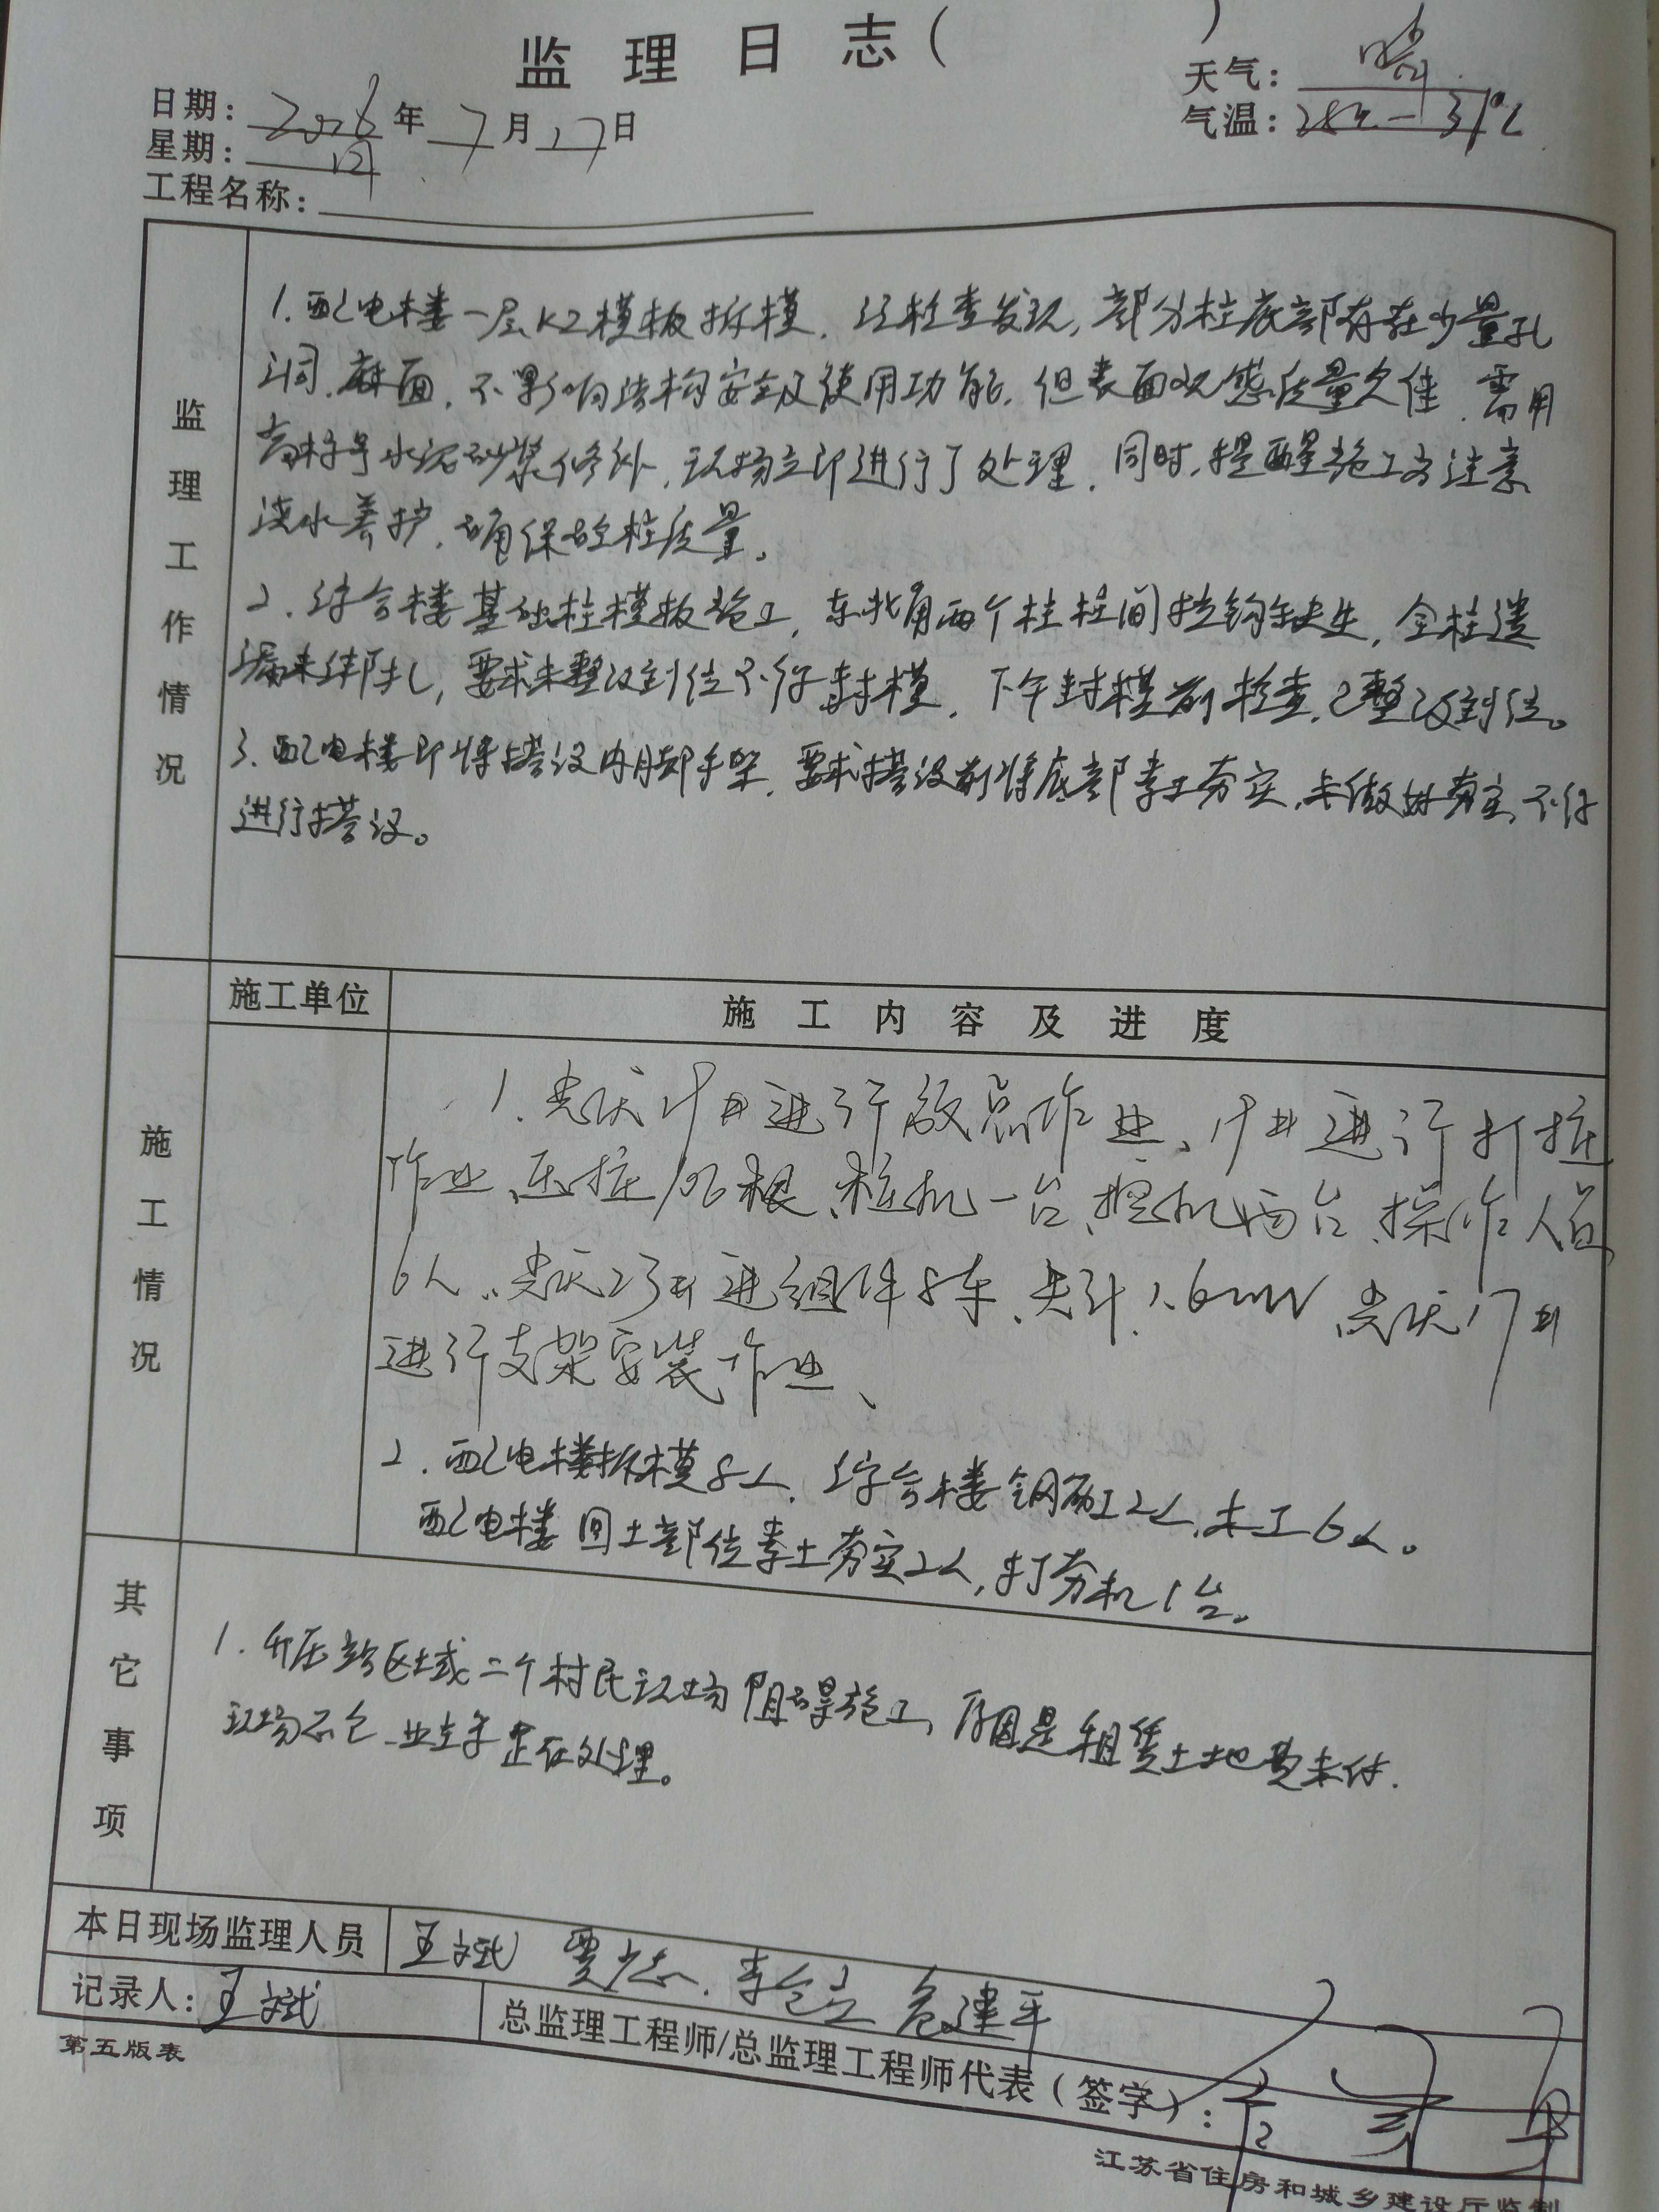 监理日志( )
天气: 晴
日期: 2026年7月17日
气温: 28℃-31℃
星期: 四
工程名称:
监理工作情况
1.配电楼一层KZ模板拆模,经检查发现,部分柱底部存在少量孔
洞、麻面,不影响结构安全及使用功能,但表面观感质量欠佳,需用
高标号水泥砂浆修补,现场立即进行了处理,同时,提醒施工方注意
浇水养护,确保砼柱质量。
2.综合楼基础柱模板施工,东北角两个柱柱间拉钩缺失,全柱遗
漏未绑扎,要求未整改到位不得封模,下午封模前检查,已整改到位。
3.配电楼即将搭设内脚手架,要求搭设前将底部素土夯实,未做好夯实,不得
进行搭设。
施工单位
施工内容及进度
施工情况
1.光伏1#进行放点作业、1#进行打桩
作业、压桩106根、桩机一台、挖机两台、操作人员
6人、光伏23#进组件8车、共计1.6mw、光伏17#
进行支架安装作业、
2.配电楼拆模8人,综合楼钢筋工2人,木工6人。
配电楼回土部位素土夯实2人,打夯机1台。
其它事项
1.升压站区域二个村民现场阻碍施工,原因是租赁土地费未付.
现场总包、业主年正在处理。
本日现场监理人员 王斌 贾 李 危建平
记录人: 王斌
总监理工程师/总监理工程师代表(签字):
第五版表
江苏省住房和城乡建设厅监制